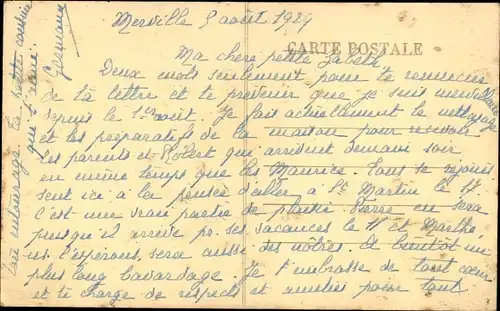 Merville 5 août 1929
CARTE POSTALE
Ma chère petite
Deux mots seulement pour te remercier
de ta lettre et te prévenir que je suis
depuis le 1er août. Je fais actuellement le nettoyage
et les préparatifs de la maison pour recevoir
les parents et Robert qui arrivent demain soir
en même temps que les Maurice. Tous se
sont ici à la pensée d'aller à St Martin le 17
C'est une vraie partie de plaisir Pierre en sera
puisqu'il arrive pr ses vacances le 11 et Marthe
ns l'espérons, sera aussi des nôtres. A bientôt un
plus long bavardage. Je t'embrasse de tout cœur
et te charge de respects et amitiés pour tout
ton entourage. Ta petite cousine
que t'aime.
Germaine